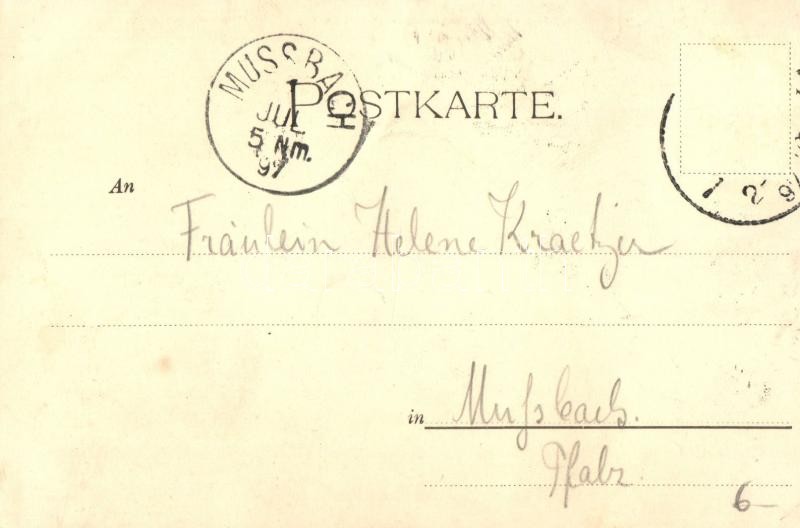 MUSSBACH
JUL
5 Nm.
97
POSTKARTE.
An
Fräulein Helene Kraetzer
in Mußbach.
Pfalz
6